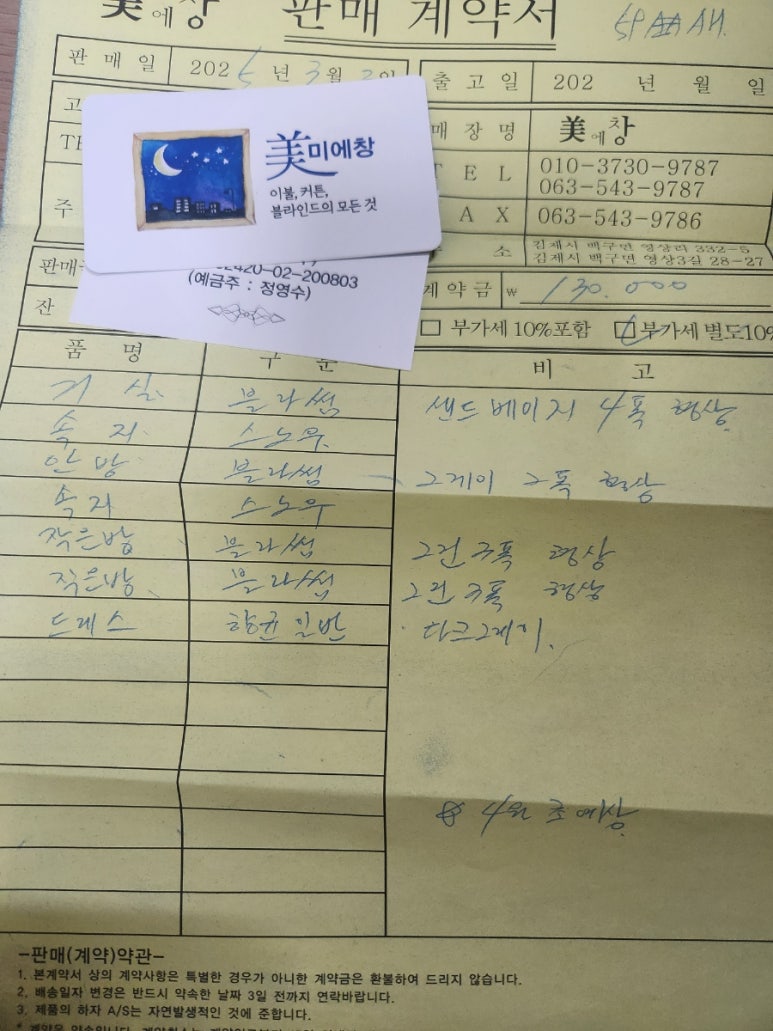 美에창 판매 계약서
판매일 2025년 3월 2일 출고일 202 년 월 일
매장명 美에창
TEL 010-3730-9787
063-543-9787
FAX 063-543-9786
주 소 김제시 백구면 영상리 332-5
김제시 백구면 영상3길 28-27
美미에창
이불, 커튼,
블라인드의 모든 것
02420-02-200803
(예금주 : 정영수)
판매
잔
계약금 ₩ 130.000
□ 부가세 10%포함 ☑ 부가세 별도10%
품 명 구 분 비 고
거실 블라썸 샌드베이지 4폭 형상
속지 스노우
안방 블라썸 그레이 2폭 형상
속지 스노우
작은방 블라썸 그린 2폭 형상
작은방 블라썸 그린 2폭 형상
드레스 항균일반 다크그레이.
4월 초 예상
-판매(계약)약관-
1. 본계약서 상의 계약사항은 특별한 경우가 아니한 계약금은 환불하여 드리지 않습니다.
2. 배송일자 변경은 반드시 약속한 날짜 3일 전까지 연락바랍니다.
3. 제품의 하자 A/S는 자연발생적인 것에 준합니다.